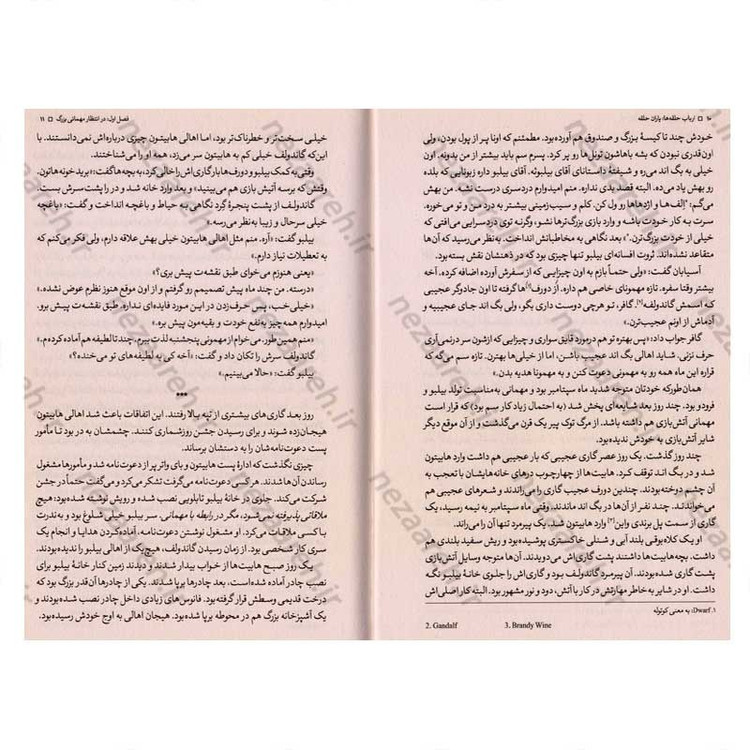 ۱۰ □ ارباب حلقه‌ها: یاران حلقه
خودش چند تا کیسهٔ بزرگ و صندوق هم آورده بود. مطمئنم که اونا پر از پول بودن، ولی
اون‌قدری نبودن که بشه باهاشون تونل‌ها رو پر کرد. پسرم سم باید بیشتر از من بدونه. اون
خیلی به بگ اند می‌ره و شیفتهٔ داستانای آقای بیلبوئه. آقای بیلبو داره زبونایی که بلده
رو بهش یاد می‌ده. البته قصد بدی نداره. منم امیدوارم دردسری درست نشه. من بهش
می‌گم: "اِلف‌ها و اژدهاها رو ول کن. کلم و سیب‌زمینی بیشتر به درد من و تو می‌خوره.
سرت به کار خودت باشه و وارد بازی بزرگ‌ترها نشو، وگرنه توی دردسرایی می‌افتی که
خیلی از خودت بزرگ‌ترن."» بعد نگاهی به مخاطبانش انداخت. به‌نظر می‌رسید که آن‌ها
متقاعد نشده‌اند. ثروت افسانه‌ای بیلبو تنها چیزی بود که در ذهنشان نقش بسته بود.
آسیابان گفت: «ولی حتماً بازم به اون چیزایی که از سفرش آورده اضافه کرده. آخه
بیشتر وقتا سفره. تازه مهمونای خاصی هم داره. از دورف[۱]ها گرفته تا اون جادوگر عجیبی
که اسمش گاندولفه[۲]. گافر، تو هرچی دوست داری بگو، ولی بگ اند جای عجیبیه و
آدماش از اونم عجیب‌ترن.»
گافر جواب داد: «پس بهتره تو هم درمورد قایق سواری و چیزایی که ازشون سر درنمی‌آری
حرف نزنی. شاید اهالی بگ اند عجیب باشن، اما از خیلی‌ها بهترن. تازه سم می‌گه که
قراره این ماه همه رو به مهمونی دعوت کنن و به مهمونا هدیه بدن.»
همان‌طور که خودتان متوجه شدید ماه سپتامبر بود و مهمانی به‌مناسبت تولد بیلبو و
فرودو بود. چند روز بعد شایعه‌ای پخش شد (به احتمال زیاد کار سم بود) که قرار است
مهمانی آتش‌بازی هم داشته باشد. از مرگ توک پیر یک قرن می‌گذشت و از آن موقع دیگر
شایر آتش‌بازی به خودش ندیده بود.
چند روز گذشت. یک روز عصر گاری عجیبی که بار عجیبی هم داشت وارد هابیتون
شد و در بگ اند توقف کرد. هابیت‌ها از چهارچوب درهای خانه‌هایشان با تعجب به
آن چشم دوخته بودند. چندین دورف عجیب گاری را می‌راندند و شعرهای عجیبی هم
می‌خواندند. چند نفر از آن‌ها در بگ اند ماندند. وقتی ماه سپتامبر به نیمه رسید، یک
گاری از سمت پل برندی واین[۳] وارد هابیتون شد. یک پیرمرد تنها آن را می‌راند.
او یک کلاه‌بوقی بلند آبی و شنلی خاکستری پوشیده بود و ریش سفید بلندی هم
داشت. بچه هابیت‌ها داشتند پشت گاری‌اش می‌دویدند. آن‌ها متوجه وسایل آتش‌بازی
پشت گاری شده بودند. آن پیرمرد گاندولف بود و گاری‌اش را جلوی خانهٔ بیلبو نگه
داشت. او در شایر به خاطر مهارتش در کار با آتش، دود و نور مشهور بود. البته کار اصلی‌اش
۱. Dwarf: به معنی کوتوله
2. Gandalf 3. Brandy Wine
فصل اول: در انتظار مهمانی بزرگ □ ۱۱
خیلی سخت‌تر و خطرناک‌تر بود، اما اهالی هابیتون چیزی درباره‌اش نمی‌دانستند. با
این‌که گاندولف خیلی کم به هابیتون سر می‌زد، همه او را می‌شناختند.
وقتی به کمک بیلبو و دورف‌ها بار گاری‌اش را خالی کرد، به بچه‌ها گفت: «برید خونه‌هاتون.
وقتش که برسه آتیش بازی هم می‌بینید» و بعد وارد خانه شد و در را پشت سرش بست.
گاندولف از پشت پنجرهٔ گرد نگاهی به حیاط و باغچه انداخت و گفت: «باغچه
خیلی سرحال و زیبا به‌نظر می‌رسه.»
بیلبو گفت: «آره. منم مثل اهالی هابیتون خیلی بهش علاقه دارم، ولی فکر می‌کنم که
به تعطیلات نیاز دارم.»
«یعنی هنوزم می‌خوای طبق نقشه‌ت پیش بری؟»
«درسته. من چند ماه پیش تصمیمم رو گرفتم و از اون موقع هنوز نظرم عوض نشده.»
«خیلی‌خب، پس حرف‌زدن در این مورد فایده‌ای نداره. طبق نقشه‌ت پیش برو.
امیدوارم همه چیز به‌نفع خودت و بقیه‌مون پیش بره.»
«منم همین‌طور. می‌خوام از مهمونی پنجشنبه لذت ببرم. چند تا لطیفه هم آماده کرده‌م.»
گاندولف سرش را تکان داد و گفت: «آخه کی به لطیفه‌های تو می‌خنده؟»
بیلبو گفت: «حالا می‌بینیم.»
***
روز بعد گاری‌های بیشتری از تپه بالا رفتند. این اتفاقات باعث شد اهالی هابیتون
هیجان‌زده شوند و برای رسیدن جشن روزشماری کنند. چشمشان به در بود تا مأمور
پست دعوت‌نامه‌شان را به دستشان برساند.
چیزی نگذشت که ادارهٔ پست هابیتون و بای واتر پر از دعوت‌نامه شد و مأمورها مشغول
رساندن آن‌ها شدند. هر کسی دعوت‌نامه می‌گرفت تشکر می‌کرد و می‌گفت حتماً در جشن
شرکت می‌کند. جلوی در خانهٔ بیلبو تابلویی نصب شده و رویش نوشته شده بود: هیچ
ملاقاتی پذیرفته نمی‌شود، مگر در رابطه با مهمانی. سر بیلبو خیلی شلوغ بود و به‌ندرت
با کسی ملاقات می‌کرد. او مشغول نوشتن دعوت‌نامه، آماده‌کردن هدایا و انجام یک
سری کار شخصی بود. از زمان رسیدن گاندولف، هیچ‌یک از اهالی بیلبو را ندیده بودند.
یک روز صبح هابیت‌ها از خواب بیدار شدند و دیدند زمین کنار خانهٔ بیلبو برای
نصب چادر آماده شده است. بعد چادرها برپا شدند. یکی از چادرها آن‌قدر بزرگ بود که
درخت قدیمی وسطش قرار گرفته بود. فانوس‌های زیادی داخل چادر نصب شده بودند و
یک آشپزخانه بزرگ هم در محوطه برپا شده بود. هیجان اهالی به اوج خودش رسیده بود.
nezaareh.ir